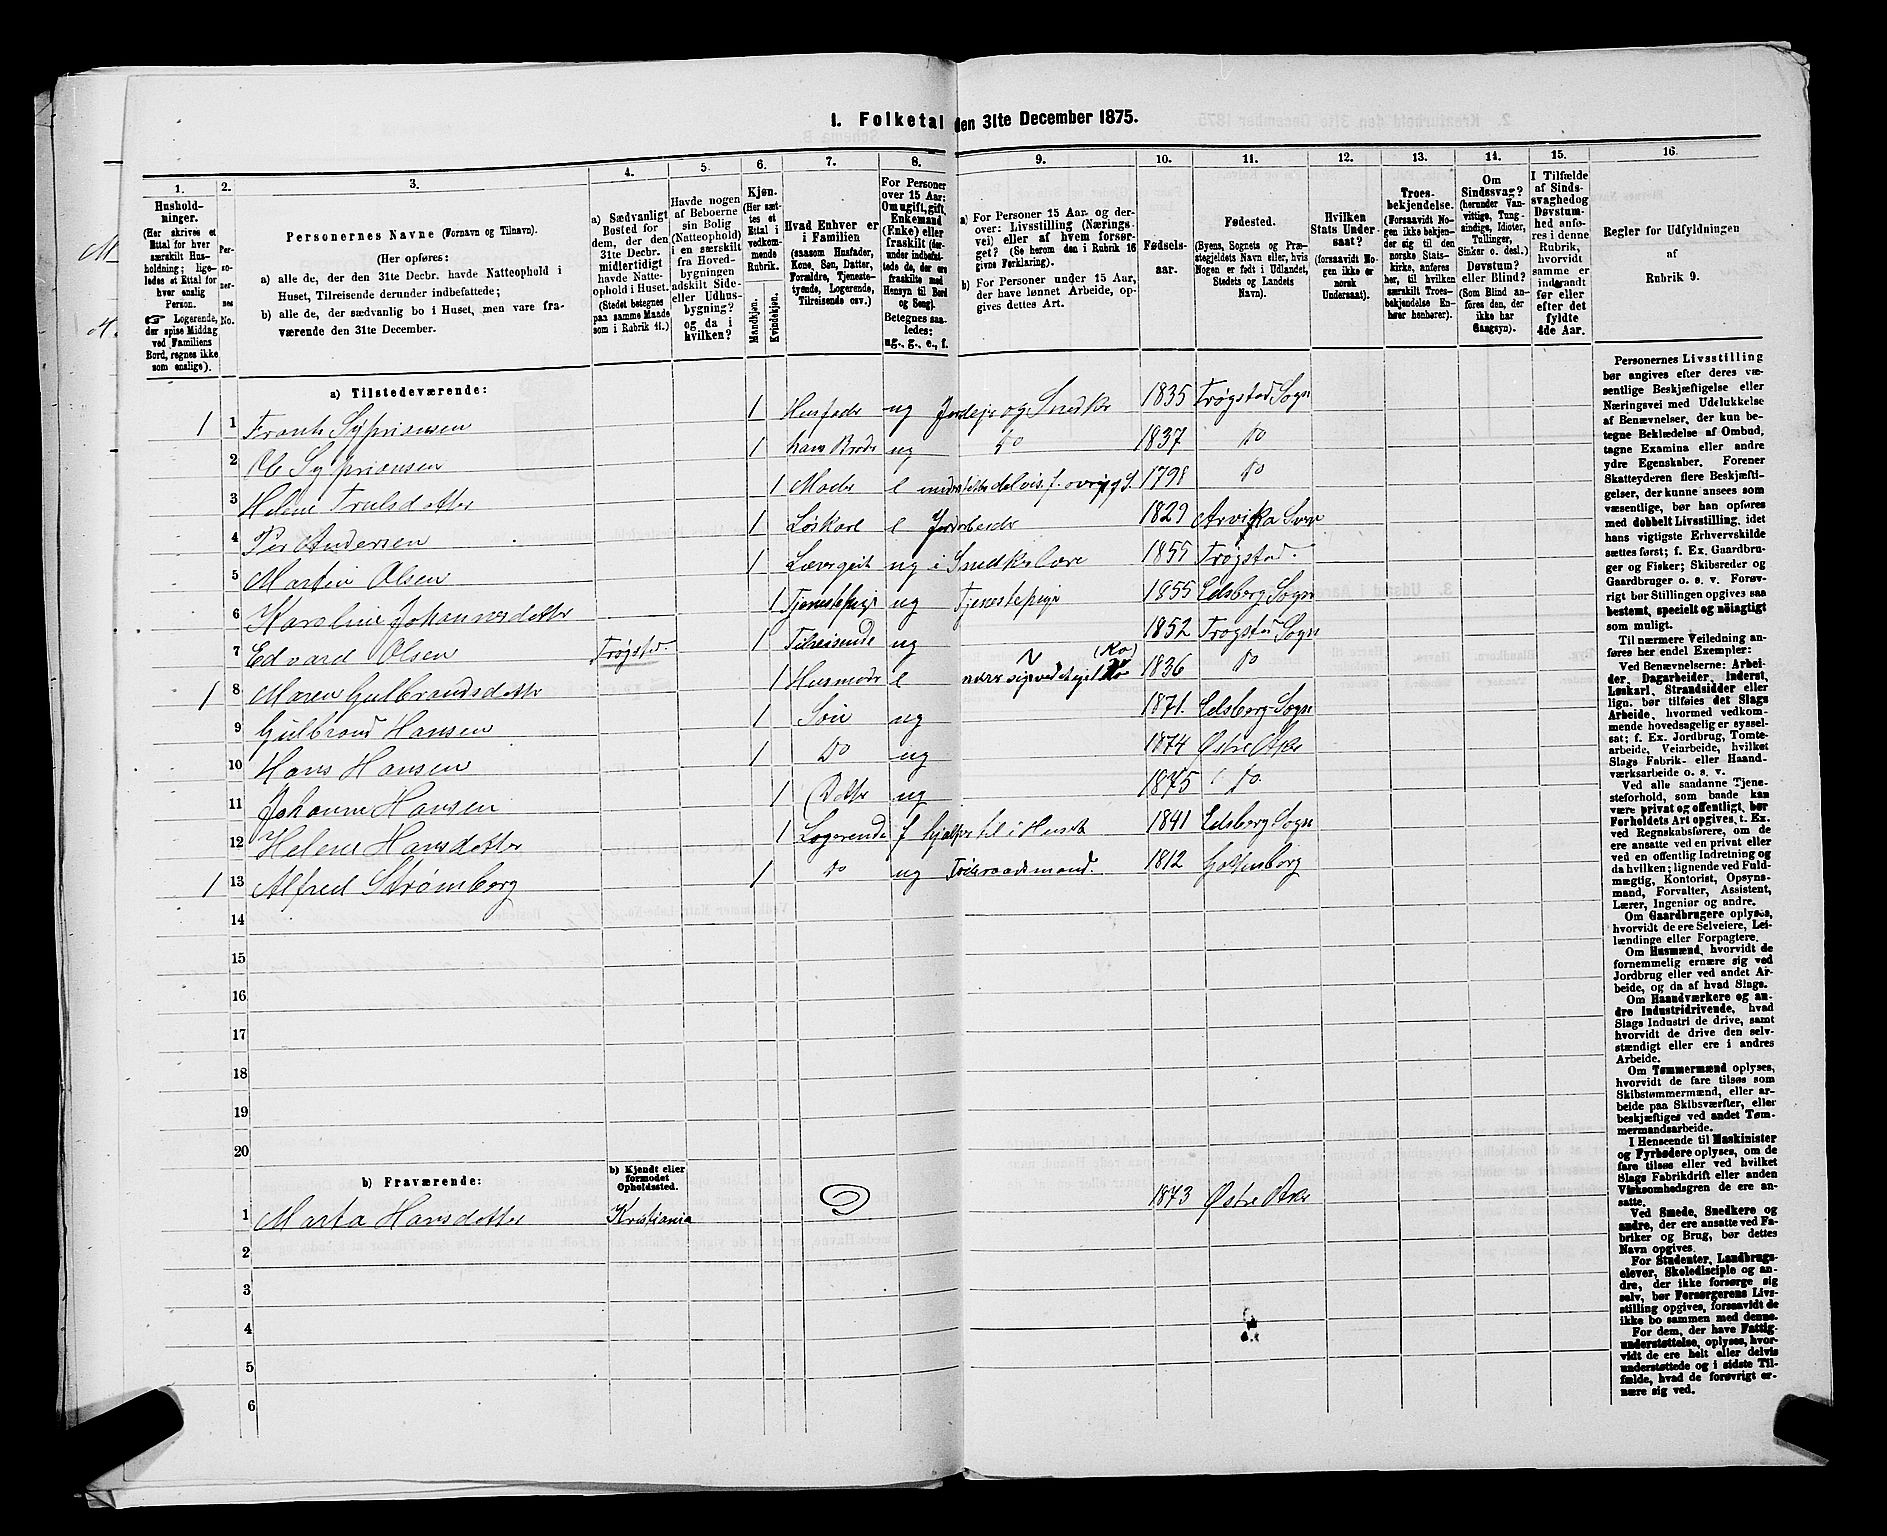 1. Folketal den 31te December 1875.
1. 2. 3. 4. 5. 6. 7. 8. 9. 10. 11. 12. 13. 14. 15. 16.
Husholdninger.
(Her skrives et Ettal for hver særskilt Husholdning; ligeledes et Ettal for hver enslig Person.
☞ Logerende, der spise Middag ved Familiens Bord, regnes ikke som enslige).
Personernes No.
Personernes Navne (Fornavn og Tilnavn).
(Her opføres:
a) alle de, der den 31te Decbr. havde Natteophold i Huset, Tilreisende derunder indbefattede;
b) alle de, der sædvanlig bo i Huset, men vare fraværende den 31te December.
a) Sædvanligt Bosted for dem, der den 31te Decbr. midlertidigt havde Natteophold i Huset. (Stedet betegnes paa samme Maade som i Rubrik 11.)
Havde nogen af Beboerne sin Bolig (Natteophold) i en særskilt fra Hovedbygningen adskilt Side- eller Udhusbygning? og da i hvilken?
Kjøn.
(Her sættes et Ettal i vedkommende Rubrik.
Mandkjøn.
Kvindekjøn.
Hvad Enhver er i Familien
(saasom Husfader, Kone, Søn, Datter, Forældre, Tjenestetyende, Logerende, Tilreisende osv.)
For Personer over 15 Aar: Om ugift, gift, Enkemand (Enke) eller fraskilt (derunder indbefattede de, der ere fraskilte med Hensyn til Bord og Seng).
Betegnes saaledes: ug., g., e., f.
a) For Personer 15 Aar og derover: Livsstilling (Næringsvei) eller af hvem forsørget? (Se herom den i Rubrik 16 givne Forklaring).
b) For Personer under 15 Aar, der have lønnet Arbeide, opgives dettes Art.
Fødselsaar.
Fødested.
(Byens, Sognets og Præstegjeldets Navn eller, hvis Nogen er født i Udlandet, Stedets og Landets Navn).
Hvilken Stats Undersaat?
(forsaavidt Nogen ikke er norsk Undersaat).
Troesbekjendelse.
(Forsaavidt Nogen ikke bekjender sig til den norske Statskirke, anføres her, til hvilken særskilt Troesbekjendelse Enhver hsnhører).
Om Sindssvag? (herunder Vanvittige, Tungsindige, Idioter, Tullinger, Sinker o. desl.) Døvstum? eller Blind? (Som Blind anføres den, der ikke har Gangsyn).
I Tilfælde af Sindssvaghed og Døvstumhed anføres i denne Rubrik, hvorvidt samme er indtraadt før eller efter det fyldte 4de Aar.
Regler for Udfyldningen af Rubrik 9.
a) Tilstedeværende:
1 1 Frants Sypriansen 1 Husfader ug Jordeje og Snedker 1835 Trøgstad Sogn
2 Ole Sypriansen 1 hans Broder ug Do 1837 Do
3 Helene Trulsdatter 1 Moder e 1798 Do
4 Per Andersen 1 Løskarl e Jordarbeider 1829 Arvika Sverr
5 Martin Olsen 1 Læregut ug i Snedkerlære 1855 Trøgstad.
6 Karoline Johannesdatter 1 Tjenestepige ug Tjenestepige 1855 Edsberg Sogn
7 Edvard Olsen Trøgstad. 1 Tilreisende ug 1852 Trøgstad Sogn
1 8 Maren Gulbrandsdatter 1 Husmoder e (Ko) 1836 Do
9 Gulbrand Hansen 1 Søn ug 1871. Edsberg Sogn
10 Hans Hansen 1 Do ug 1874 Østre Aker
11 Johanne Hansen 1 Datter ug 1875 Do
12 Helene Hansdatter 1 Logerende f hjælper til i Huset 1841 Edsberg Sogn
1 13 Alfred Strømberg 1 Do ug Føderaadsmand. 1812 Gothenborg
14
15
16
17
18
19
20
b) Fraværende:
b) Kjendt eller formodet Opholdssted.
1 Marta Hansdatter Kristiania 1873 Østre Aker
2
3
4
5
6
Personernes Livsstilling
bør angives efter deres væsentlige Beskjæftigelse eller
Næringsvei med Udelukkelse
af Benævnelser, der kun betegne Beklædelse af Ombud,
tagne Examina eller andre
ydre Egenskaber. Forener
Skatteyderen flere Beskjæftigelser, der kunne ansees som
væsentlige, bør han opføres
med dobbelt Livsstilling, idet
hans vigtigste Erhvervskilde
sættes først; f. Ex. Gaardbruger og Fisker; Skibsreder og
Gaardbruger o. s. v. Forøvrigt bør Stillingen opgives saa
bestemt, specielt og nöiagtigt
som muligt.
Til nærmere Veiledning anføres her endel Exempler:
Ved Benævnelserne: Arbeider, Dagarbeider, Inderst,
Løskarl, Strandsidder eller
lign. bør tilføies det Slags
Arbeide, hvormed vedkommende hovedsagelig er sysselsat; f. Ex. Jordbrug, Tomtearbeide, Veiarbeide, hvilket
Slags Fabrik- eller Haandværksarbeide o. s. v.
Ved alle saadanne Tjenesteforhold, som baade kan
være privat og offentligt, bør
Forholdets Art opgives, t. Ex.
ved Regnskabsførere, om de
ere ansatte ved en privat eller
ved en offentlig Indretning og
da hvilken; lignende ved Fuldmægtig, Kontorist, Opsynsmand, Forvalter, Assistent,
Lærer, Ingeniør og andre.
Om Gaardbrugere oplyses,
hvorvidt de ere Selveiere, Leilændinge eller Forpagtere.
Om Husmænd, hvorvidt de
fornemmelig ernære sig ved
Jordbrug eller ved andet Arbeide, og da af hvad Slags.
Om Haandværkere og andre Industridrivende, hvad
Slags Industri de drive, samt
hvorvidt de drive den selvstændigt eller ere i andres
Arbeide.
Om Tømmermænd oplyses,
hvorvidt de fare tilsøs som
Skibstømmermænd, eller arbeide paa Skibsværfter, eller
beskjæftiges ved andet Tømmermandsarbeide.
I Henseende til Maskinister
og Fyrbødere oplyses, om de
fare tilsøs eller ved hvilket
Slags Fabrikdrift eller anden
Virksomhedsgren de ere ansatte.
Ved Smede, Snedkere og
andre, der ere ansatte ved Fabriker og Brug, bør dettes
Navn opgives.
For Studenter, Landbrugselever, Skoledisciple og andre, der ikke forsørge sig
selv, bør Forsørgerens Livsstilling opgives, forsaavidt de
ikke bo sammen med denne.
For dem, der have Fattigunderstøttelse, oplyses, hvorvidt de ere helt eller delvis
understøttede og i sidste Tilfælde, hvad de forøvrigt ernære sig ved.